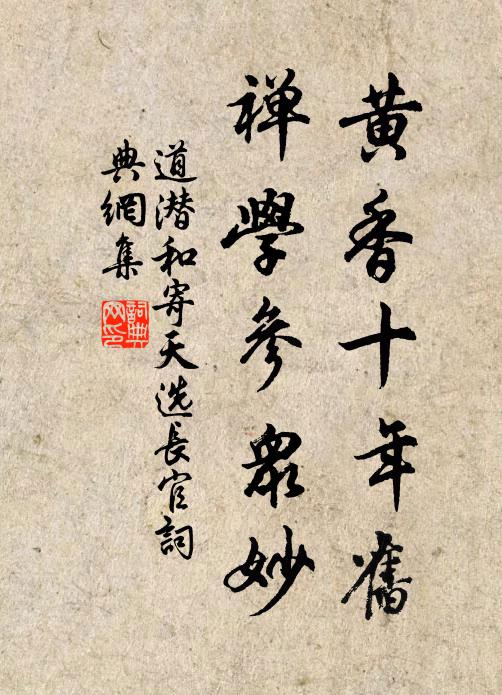 黄香十年舊
禅學參衆妙
道潜和寄天选長官詞
典網集
詞典网印